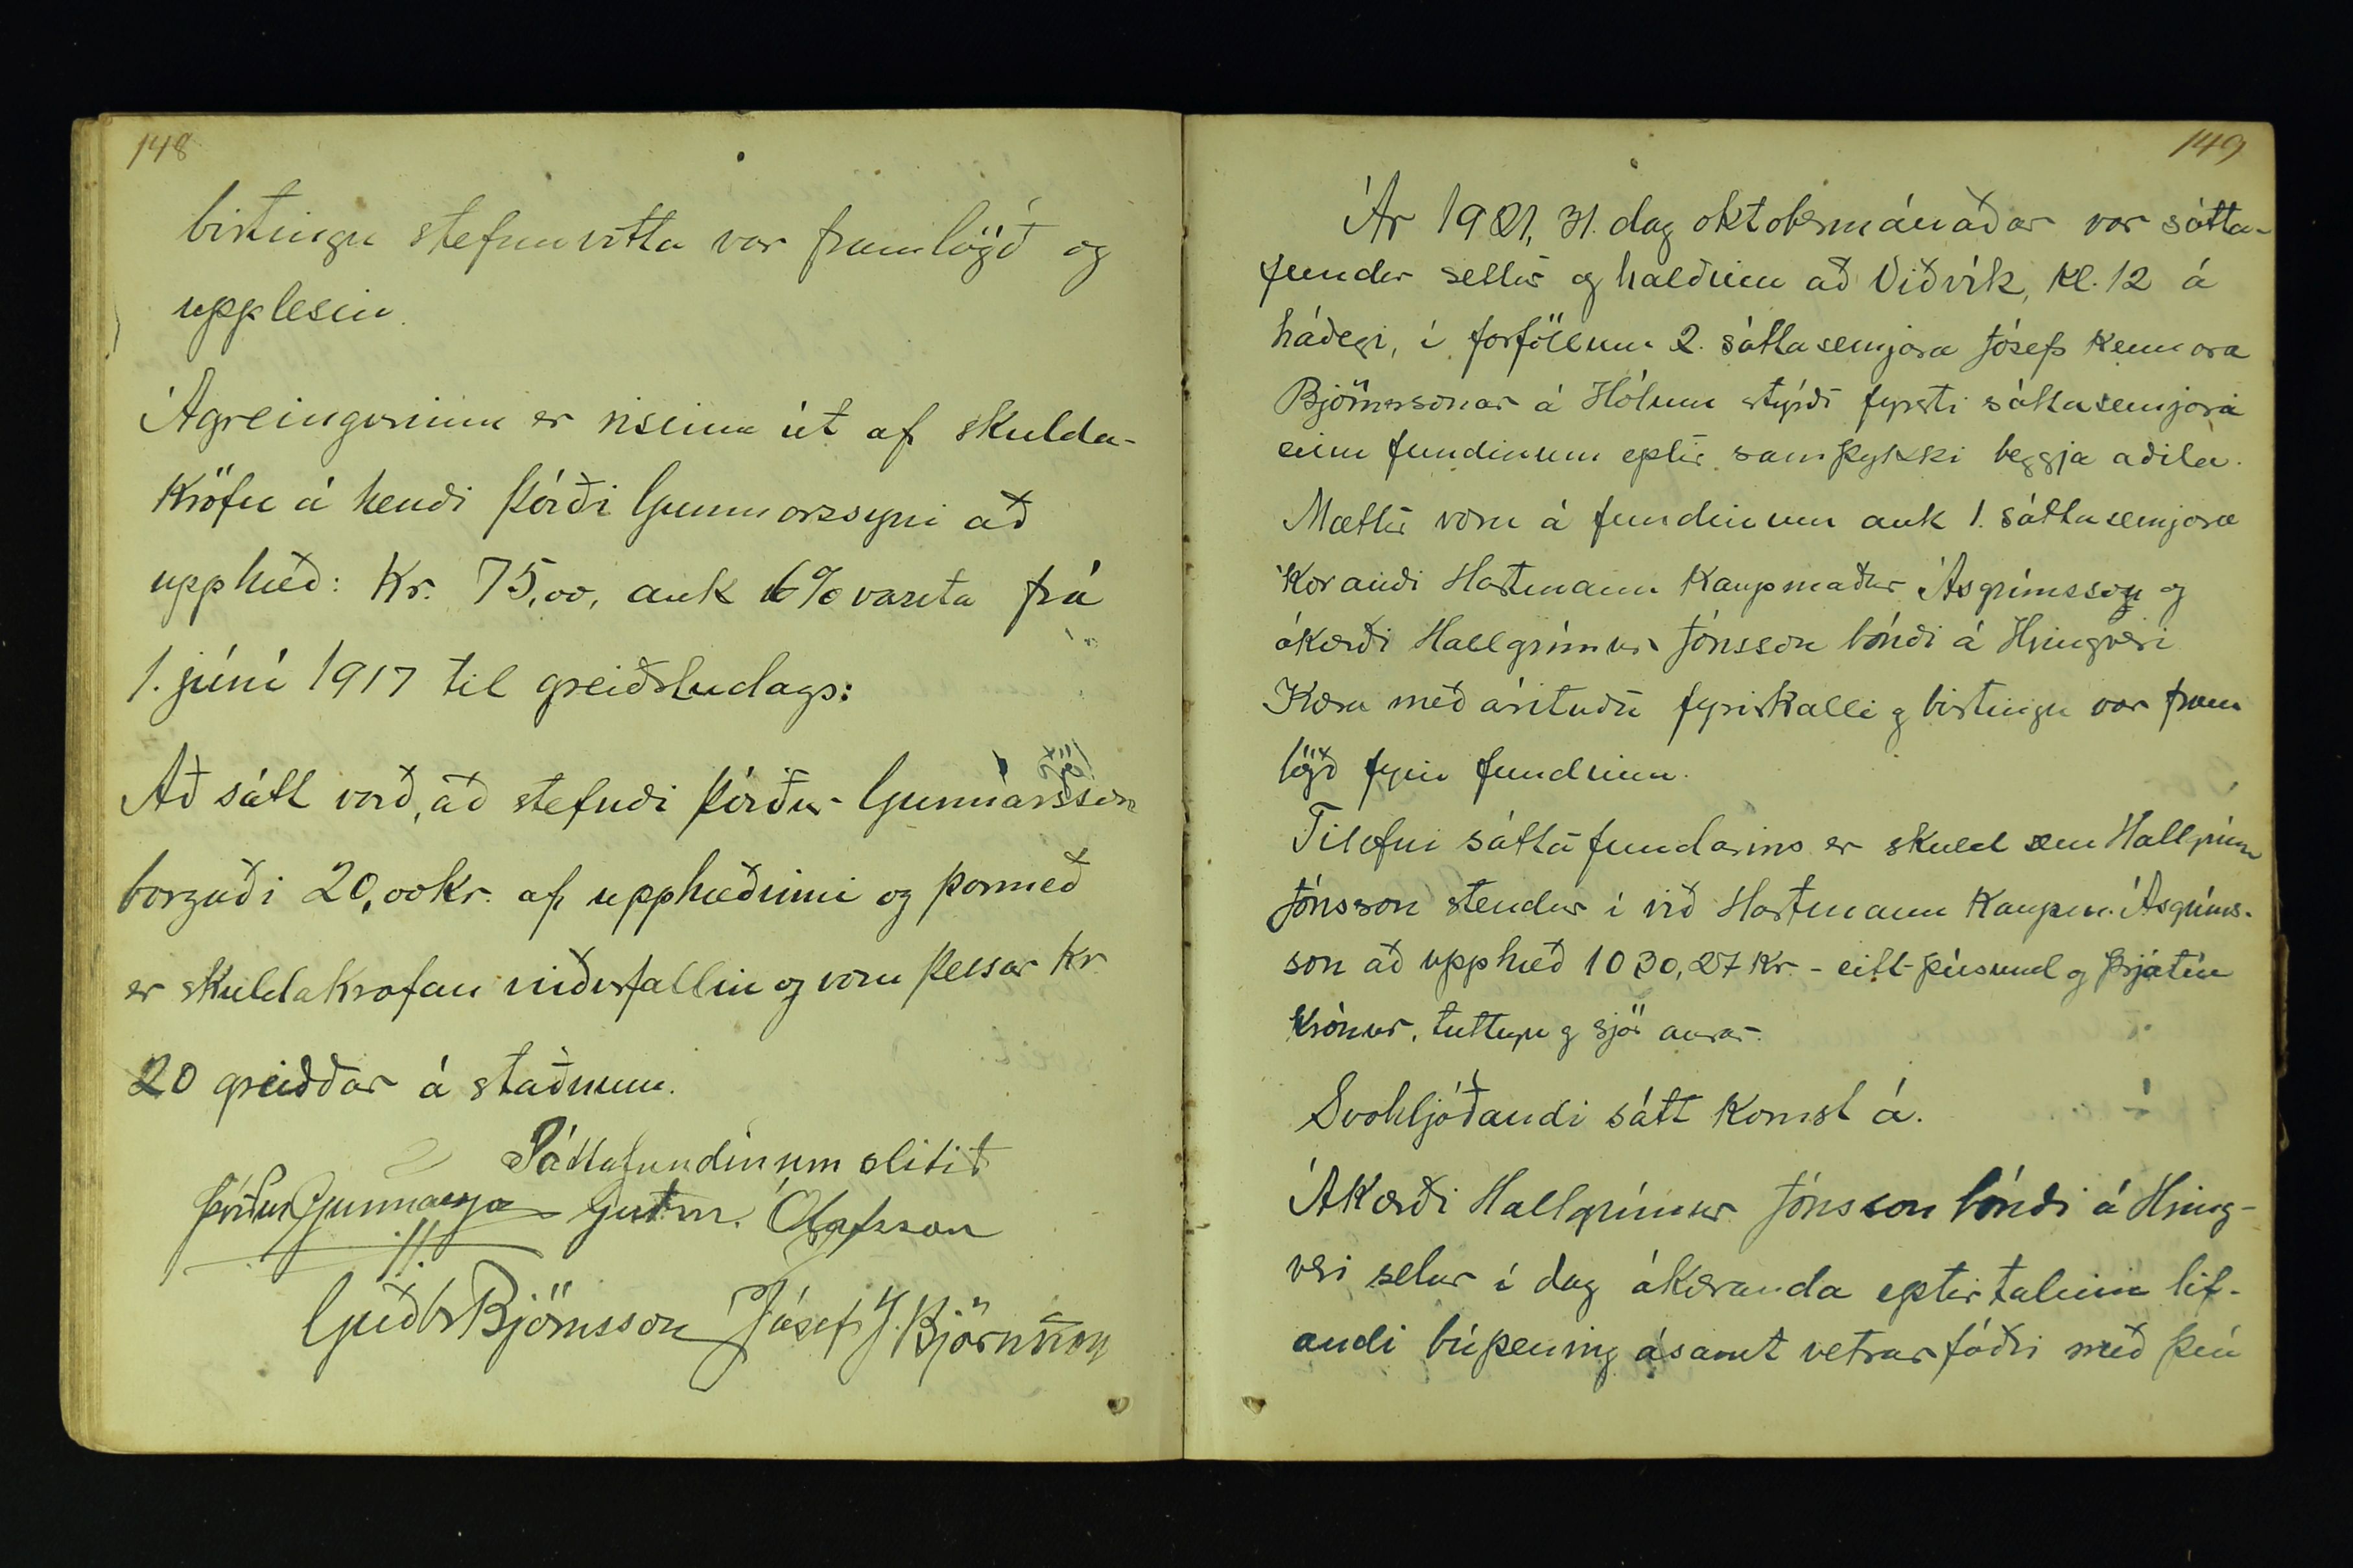 148
birtingu stefnuvotta var framlögð og
upplesin.
Ágreiningurinn er risinn út af skulda-
kröfu á hendi Þórði Gunnarssyni að
upphæð: Kr. 75,00, auk 6% vaxta frá
1. júní 1917 til greiðsludags:
Að sátt varð, að stefndi Þórður Gunnarsson
borguði 20,00 kr. af upphæðinni og þarmeð
er skuldakrafan niðurfallin og voru þessar kr.
20 greiddar á staðnum.
Sáttafundinum slitið
Þórður Gunnarsson Guðm. Ólafsson
Guðbr Björnsson Jósef J. Björnsson
149
Ár 1921, 31. dag oktobermánaðar var sátta-
fundur settur og haldinn að Viðvík, kl. 12 á
hádegi, í forföllum 2. sáttasemjara Jósefs kennara
Björnssonar á Hólum stýrði fyrsti sáttasemjari
einn fundinum eptir samþykki beggja aðila.
Mættir voru á fundinum auk 1. sáttasemjara
kærandi Hartmann kaupmaður Ásgrímsson og
ákærði Hallgrímur Jónsson bóndi á Hringveri
Kæra með árituðu fyrirkalli og birtingu var fram
lögð fyrir fundinn.
Tilefni sáttafundarins er skuld sem Hallgrímur
Jónsson stendur í við Hartmann kaupm. Ásgríms-
son að upphæð 1030,27 kr. - eitt þúsund og þrjátíu
krónur, tuttugu og sjö aurar-
Svohljóðandi sátt komst á.
Ákærði Hallgrímur Jónsson bóndi á Hring-
veri selur í dag ákæranda eptirtalinn lif-
andi búpening ásamt vetrarfóðri með því